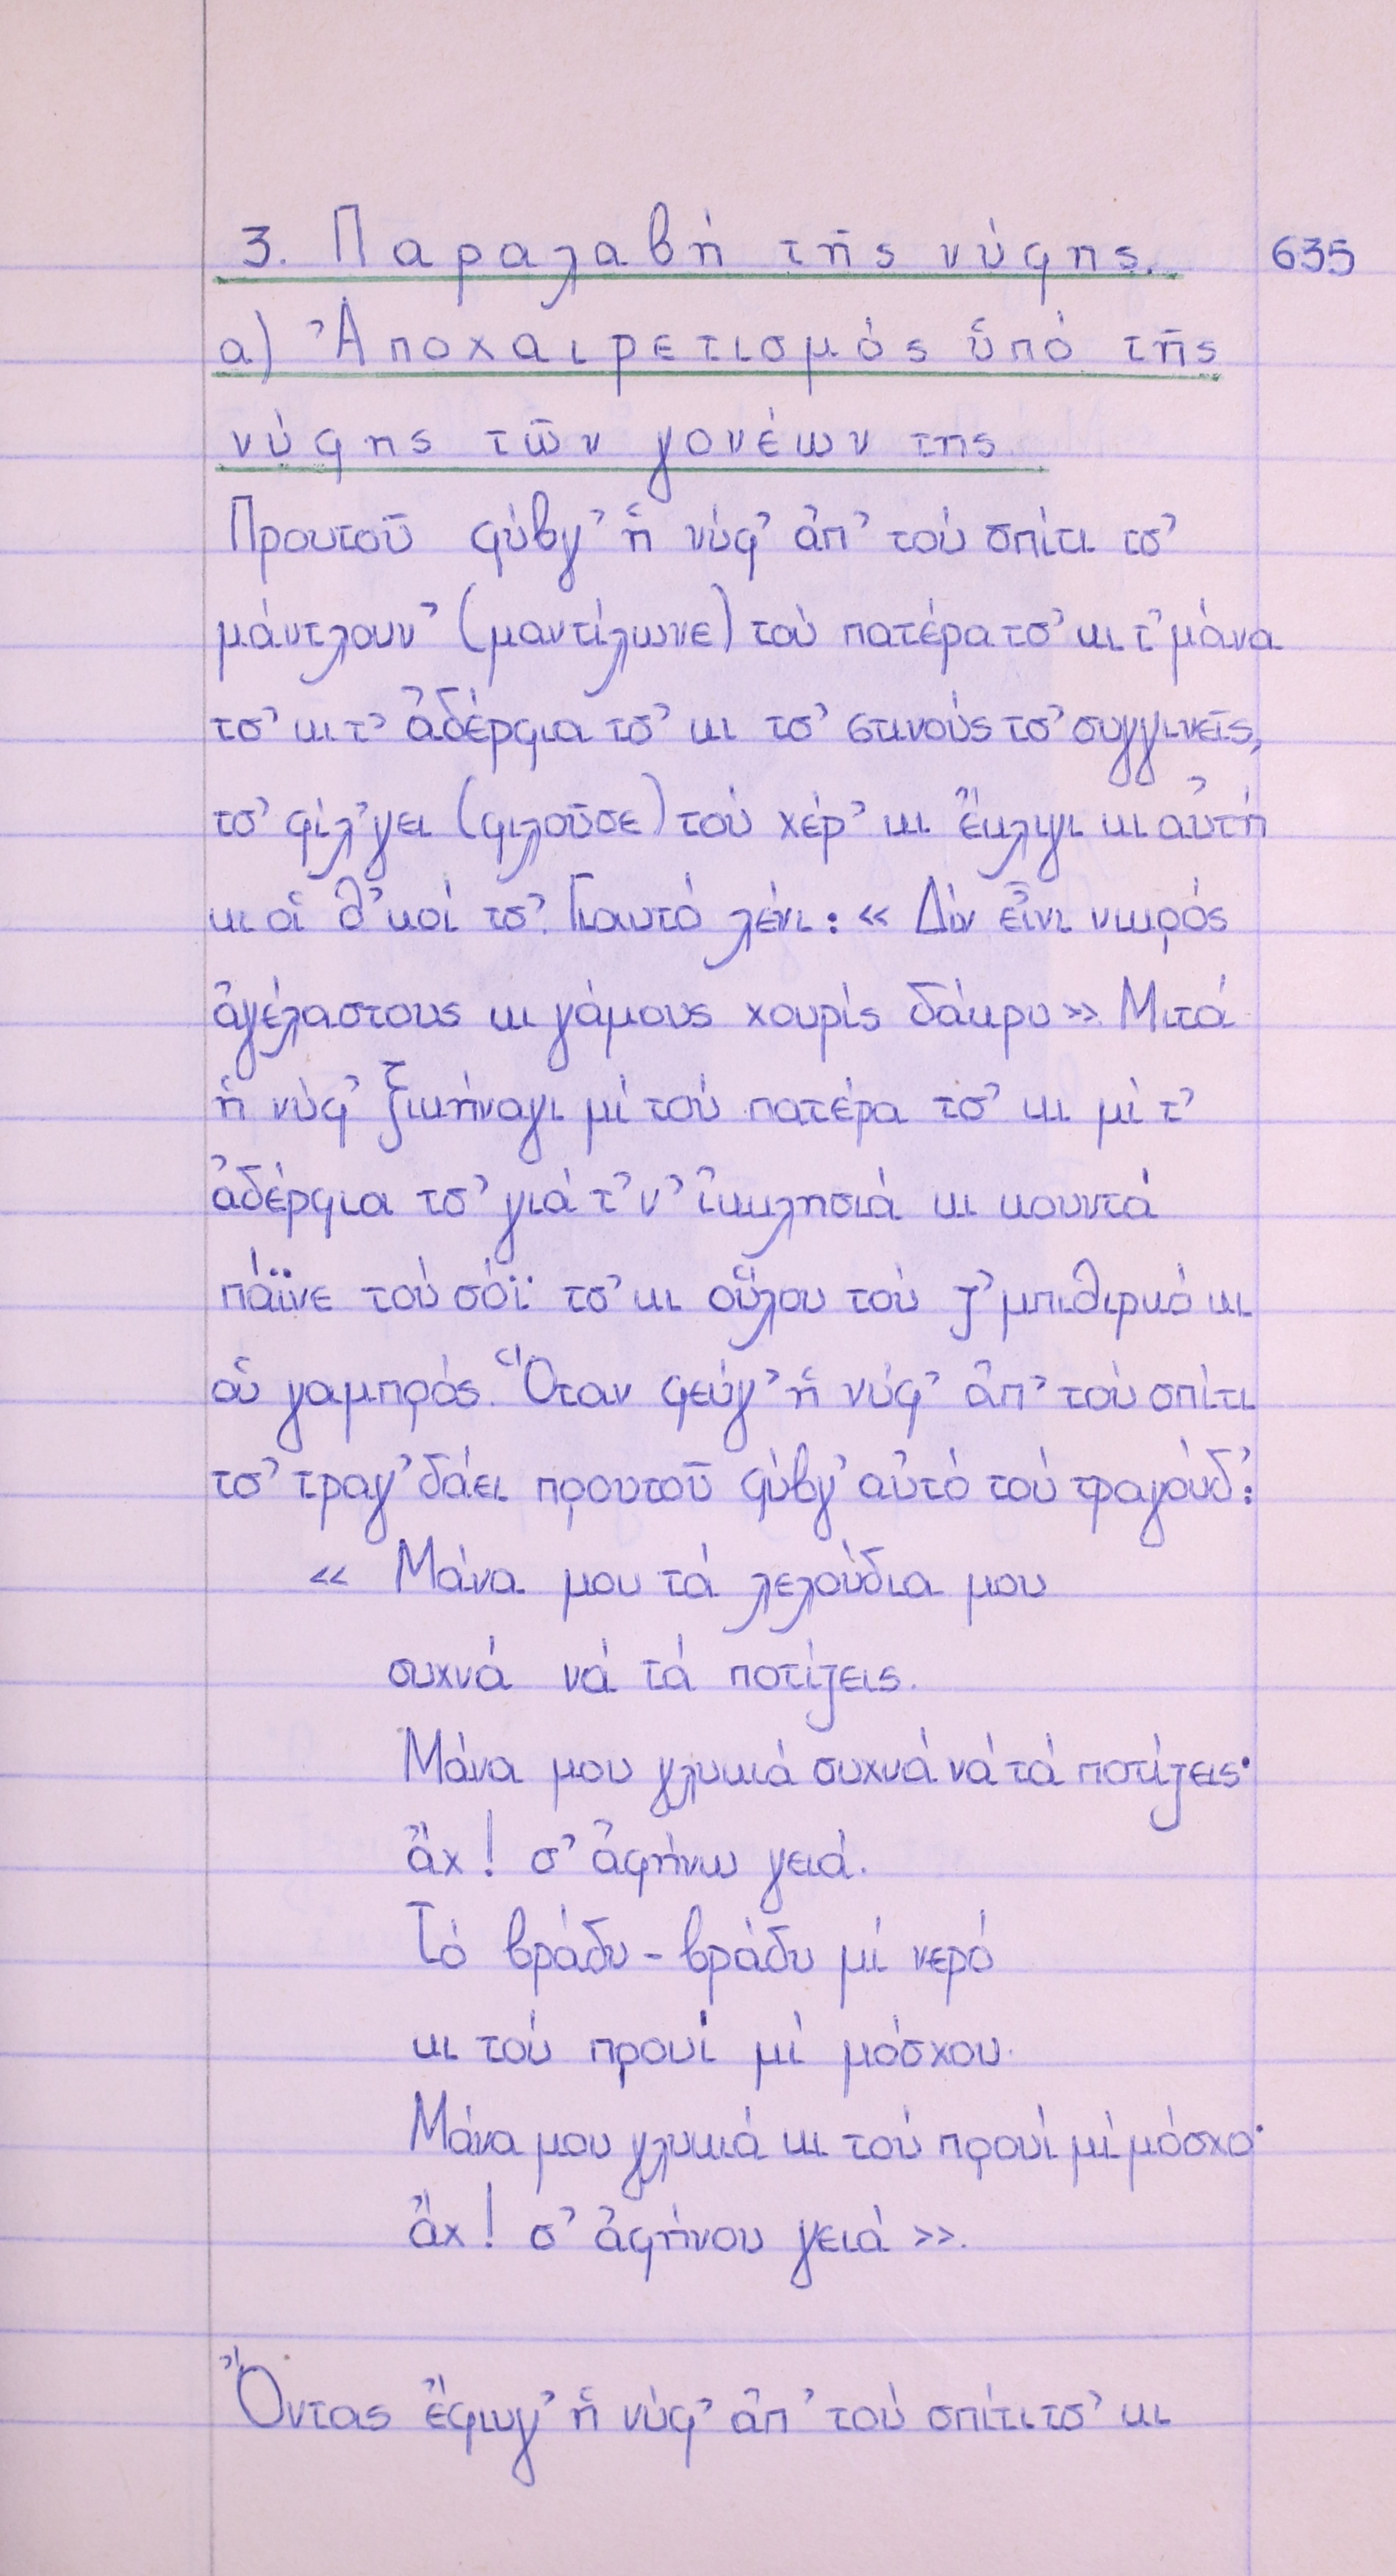 3. Παραλαβή τῆς νύφης. 635
α) Ἀποχαιρετισμός ὑπό τῆς
νύφης τῶν γονέων της
Προυτοῦ φύβγ' ἡ νύφ' ἀπ' τού σπίτι τσ'
μάντλουν' (μαντίλωνε) τού πατέρα τσ' κι τ' μάνα
τσ' κι τ' ἀδέρφια τσ' κι τσ' στινούς τσ' συγγινεῖς,
τσ' φίλ'γει (φιλοῦσε) τού χέρ' κι ἔκλιγι κι αὐτή
κι οἱ δ'κοί τσ'. Γιαυτό λένι: « Δίν εἶνι νικρός
ἀγέλαστους κι γάμους χουρίς δάκρυ». Μιτά
ἡ νύφ' ξικήναγι μί τού πατέρα τσ' κι μί τ'
ἀδέρφια τσ' γιά τ'ν' ἰκκλησιά κι κουντά
πάϊνε τού σόϊ τσ' κι οὕλου τού ζ'μπιθιρκό κι
οὑ γαμπρός. Ὅταν φεύγ' ἡ νύφ' ἀπ' τού σπίτι
τσ' τραγ'δάει προυτοῦ φύβγ' αὐτό τού τραγούδ':
« Μάνα μου τά λελούδια μου
συχνά νά τά ποτίζεις.
Μάνα μου γλυκιά συχνά νά τά ποτίζεις·
ἄχ! σ' ἀφήνω γειά.
Τό βράδυ - βράδυ μί νερό
κι τού προυί μί μόσχου.
Μάνα μου γλυκιά κι τού προυί μί μόσχο·
ἄχ! σ' ἀφήνου γειά ».
Ὄντας ἔφιυγ' ἡ νύφ' ἀπ' τού σπίτι τσ' κι